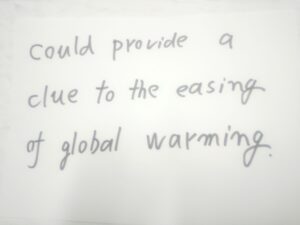 could provide a
clue to the easing
of global warming.